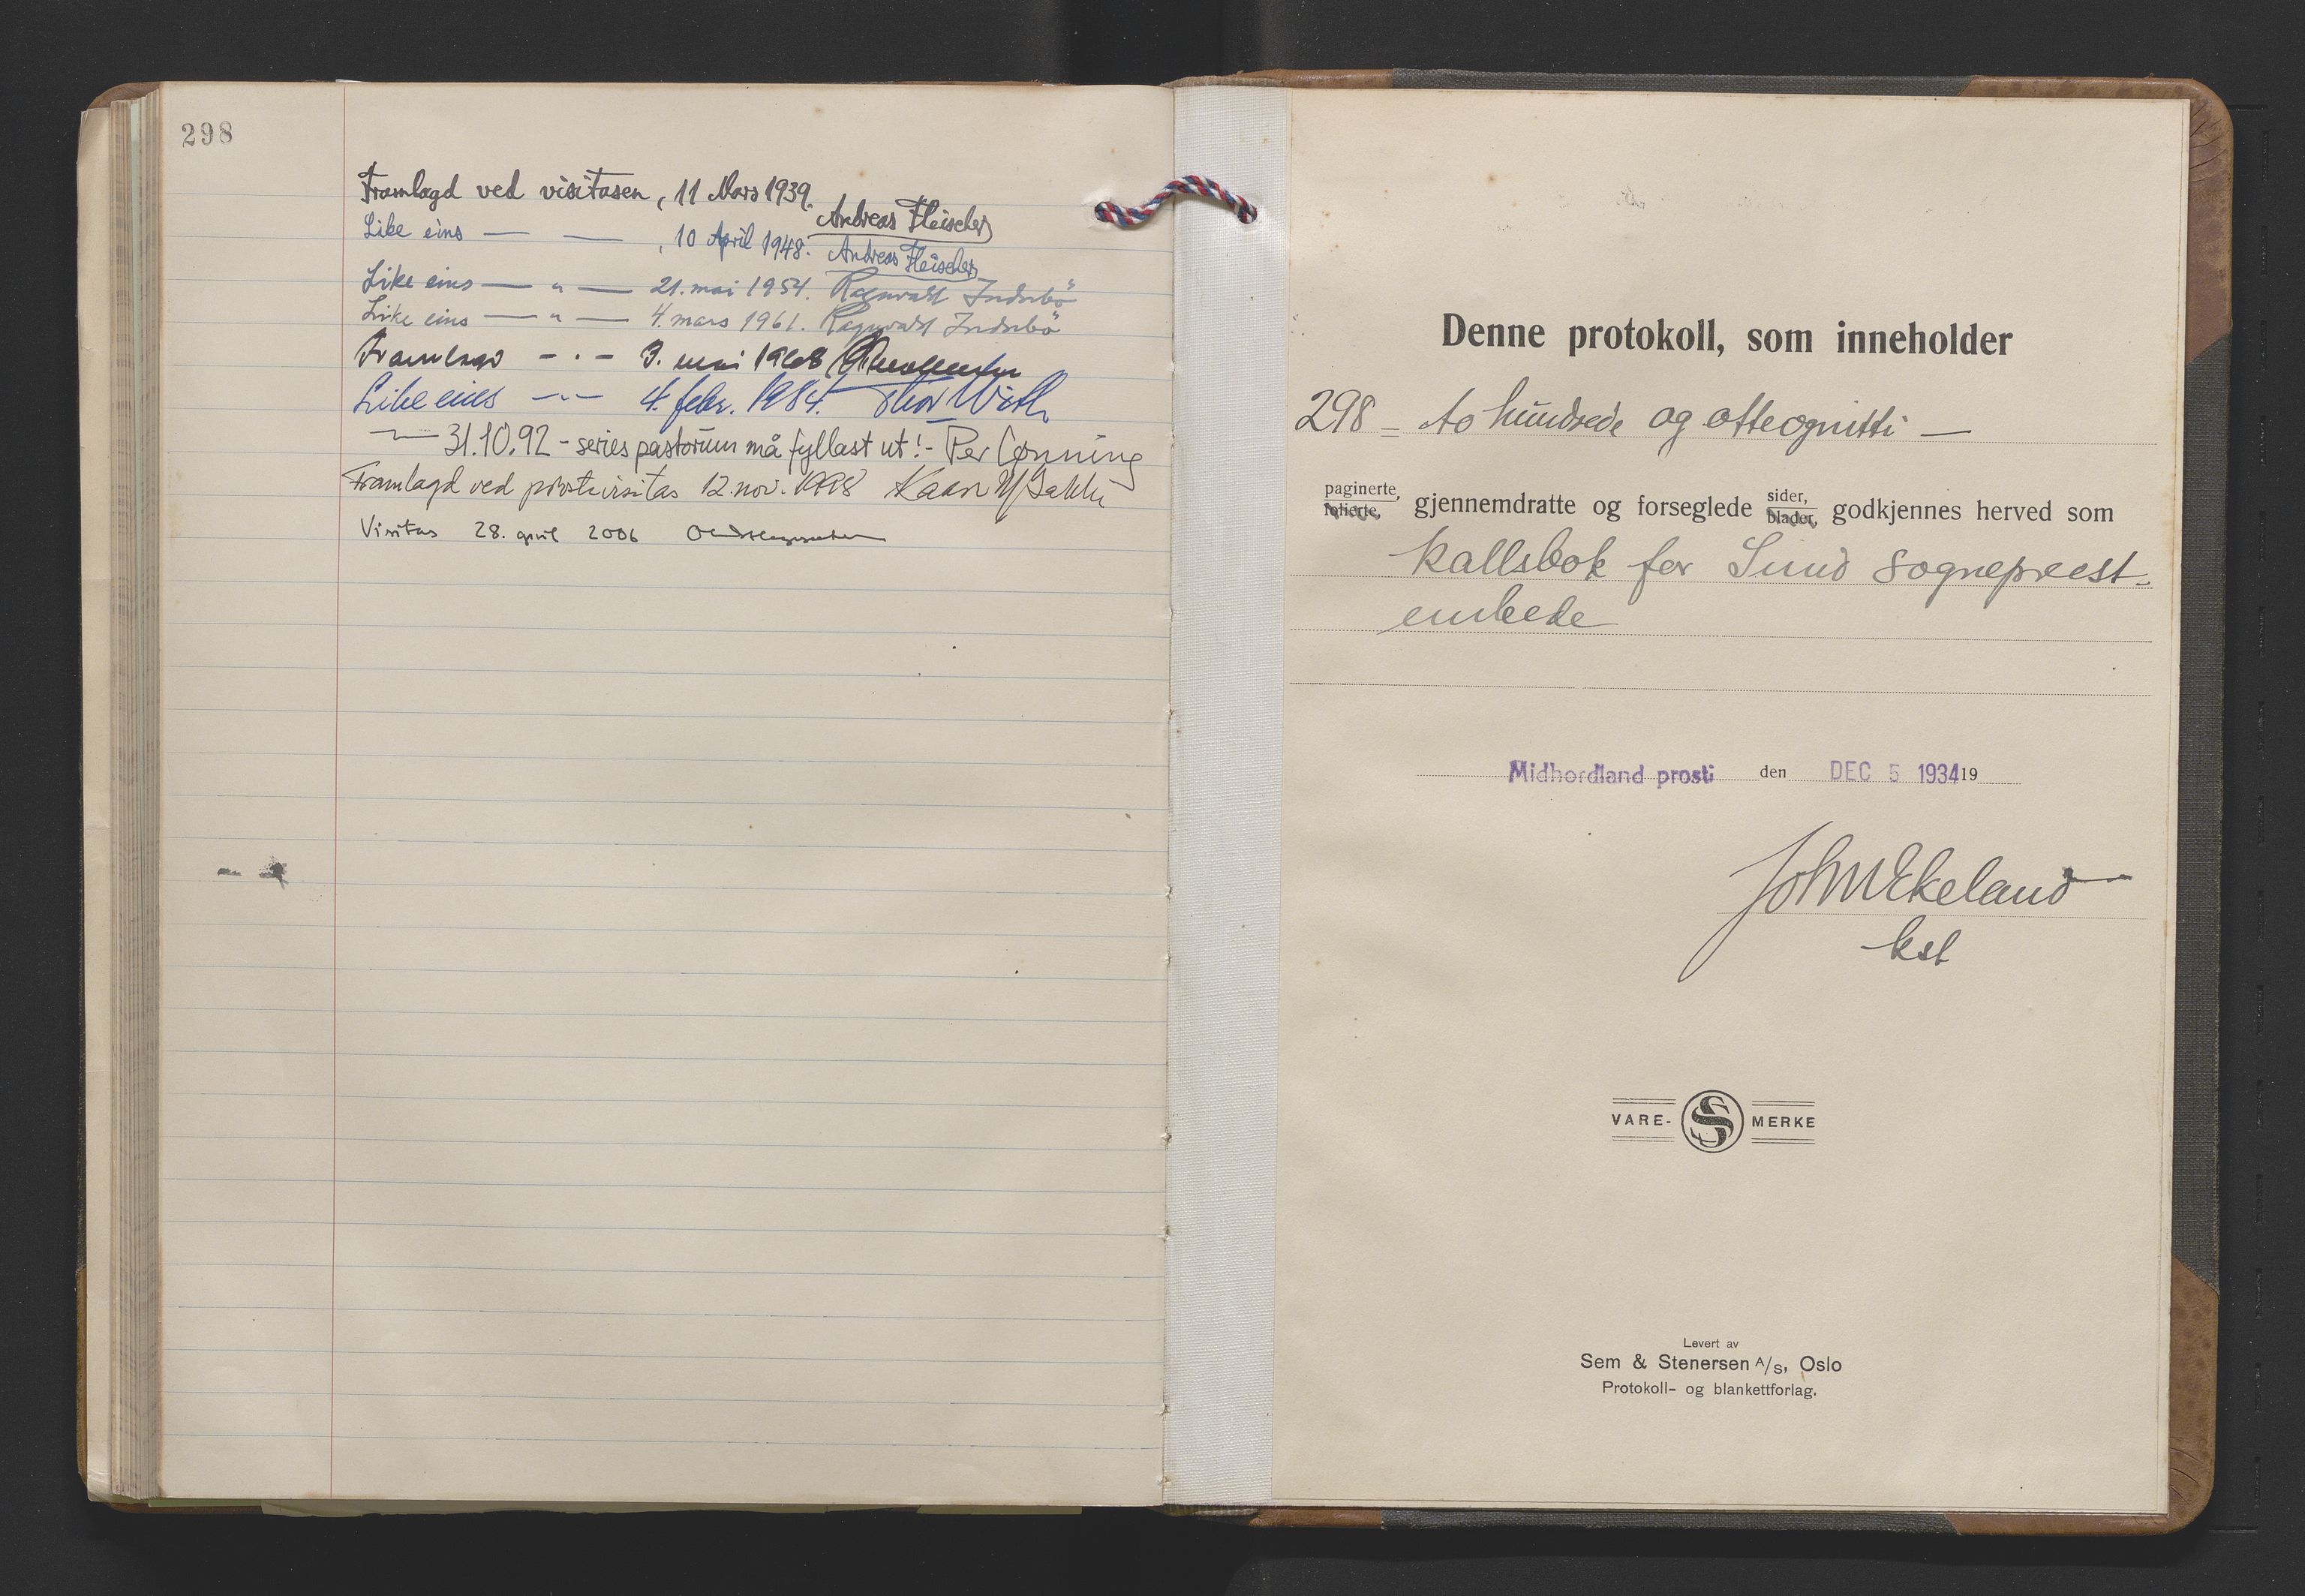 298
Framlagd ved visitasen, 11 Mars 1939. Andreas Fleischer
Like eins — — , 10 April 1948. Andreas Fleischer
Like eins — " — 21. mai 1954. Ragnvald Indrebö
Like eins — " — 4. mars 1961. Ragnvald Indrebö
Framlagd - . - 3. mai 1968
Like eins - " - 4. febr. 1984. Thor With
— 31.10.92 - series pastorum må fyllast ut! - Per Lønning
Framlagd ved prostevisitas 12. nov. 1998 Kaare
Visitas 28. april 2006
Denne protokoll, som inneholder
298 = to hundrede og otteognitti —
paginerte, sider,
folierte, gjennemdratte og forseglede blader, godkjennes herved som
kallsbok for Sund sogneprest-
embede
Midhordland prosti den DEC 5 1934 19
Joh M Ekeland
kst
VARE- S MERKE
Levert av
Sem & Stenersen A/S, Oslo
Protokoll- og blankettforlag.